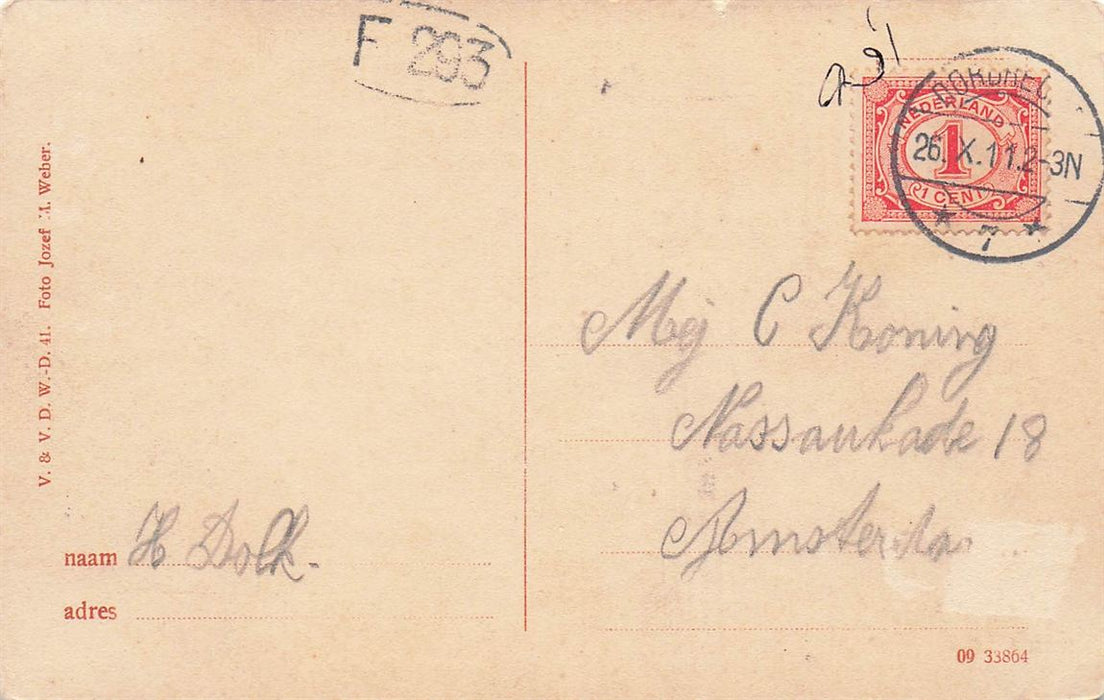 F 293
NEDERLAND
1
1 CENT
26. X. 11. 2-3N
7
V. & V. D. W.-D. 41. Foto Jozef M. Weber.
Mej C Koning
Nassaukade 18
Amsterda
naam H Dolk.
adres
09 33864